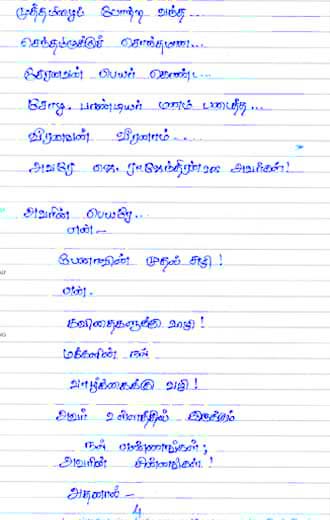 முத்தமிழைப் போற்றி வந்த...
செந்தமிழுக்குச் சொந்தமான...
சேரனவன் பெயர் கொண்ட...
சோழ, பாண்டியர் மனம் படைத்த...
வீரனவன் வீரனாம்.....
அவரே அவர்கள்!
அவரின் பெயரே...
என் –
பேனாவின் முதல் சுழி!
என்.
கவிதைகளுக்கு வாழி!
மக்களின் நல்
வாழ்க்கைக்கு வழி!
அவர் உள்ளத்தில் இருக்கும்
நல் எண்ணங்கள்;
அவரின் சின்னங்கள்!
அதனால் –
4